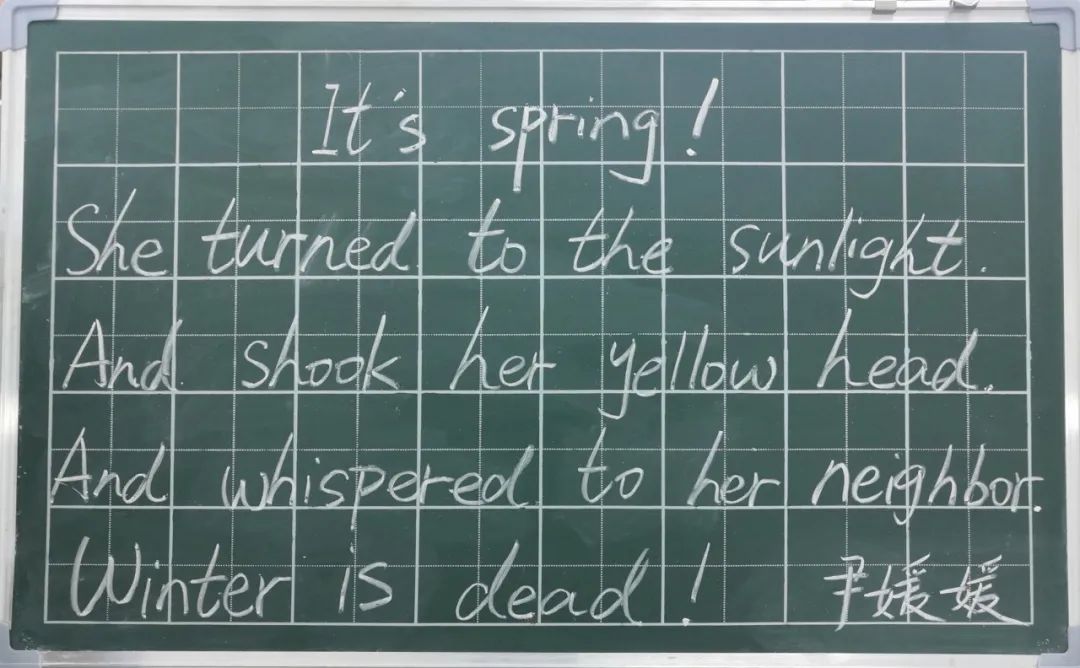 It's spring!
She turned to the sunlight.
And shook her yellow head.
And whispered to her neighbor.
Winter is dead! 尹媛媛